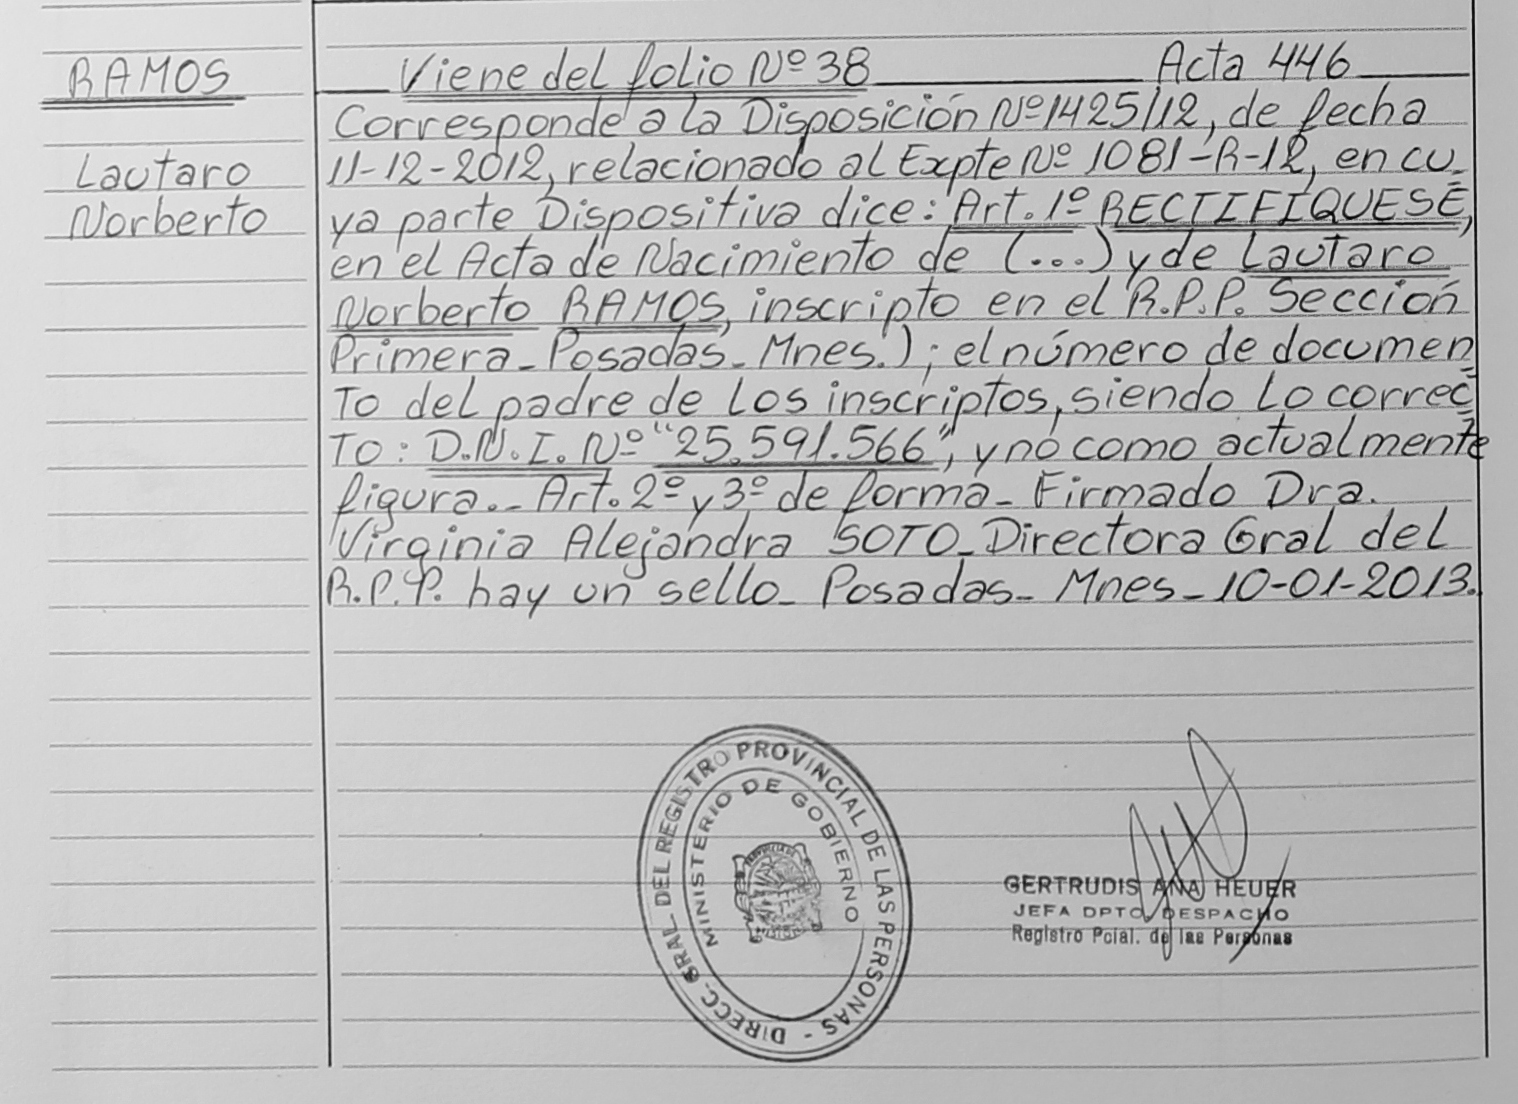 RAMOS
Lautaro
Norberto
Viene del folio Nº 38 Acta 446
Corresponde a la Disposición Nº 1425/12, de fecha
11-12-2012, relacionado al Expte Nº 1081-R-12, en cu=
ya parte Dispositiva dice: Art. 1º RECTIFIQUESE,
en el Acta de Nacimiento de (...) y de Lautaro
Norberto RAMOS, inscripto en el R.P.P. Sección
Primera - Posadas - Mnes.); el número de documen=
to del padre de los inscriptos, siendo lo correc=
to: D.N.I. Nº "25.591.566", y no como actualmente
figura.- Art. 2º y 3º de forma - Firmado Dra.
Virginia Alejandra SOTO - Directora Gral del
R.P.P. hay un sello - Posadas - Mnes - 10-01-2013.
DIRECC. GRAL. DEL REGISTRO PROVINCIAL DE LAS PERSONAS -
MINISTERIO DE GOBIERNO
GERTRUDIS ANA HEUER
JEFA DPTO. DESPACHO
Registro Pcial. de las Personas